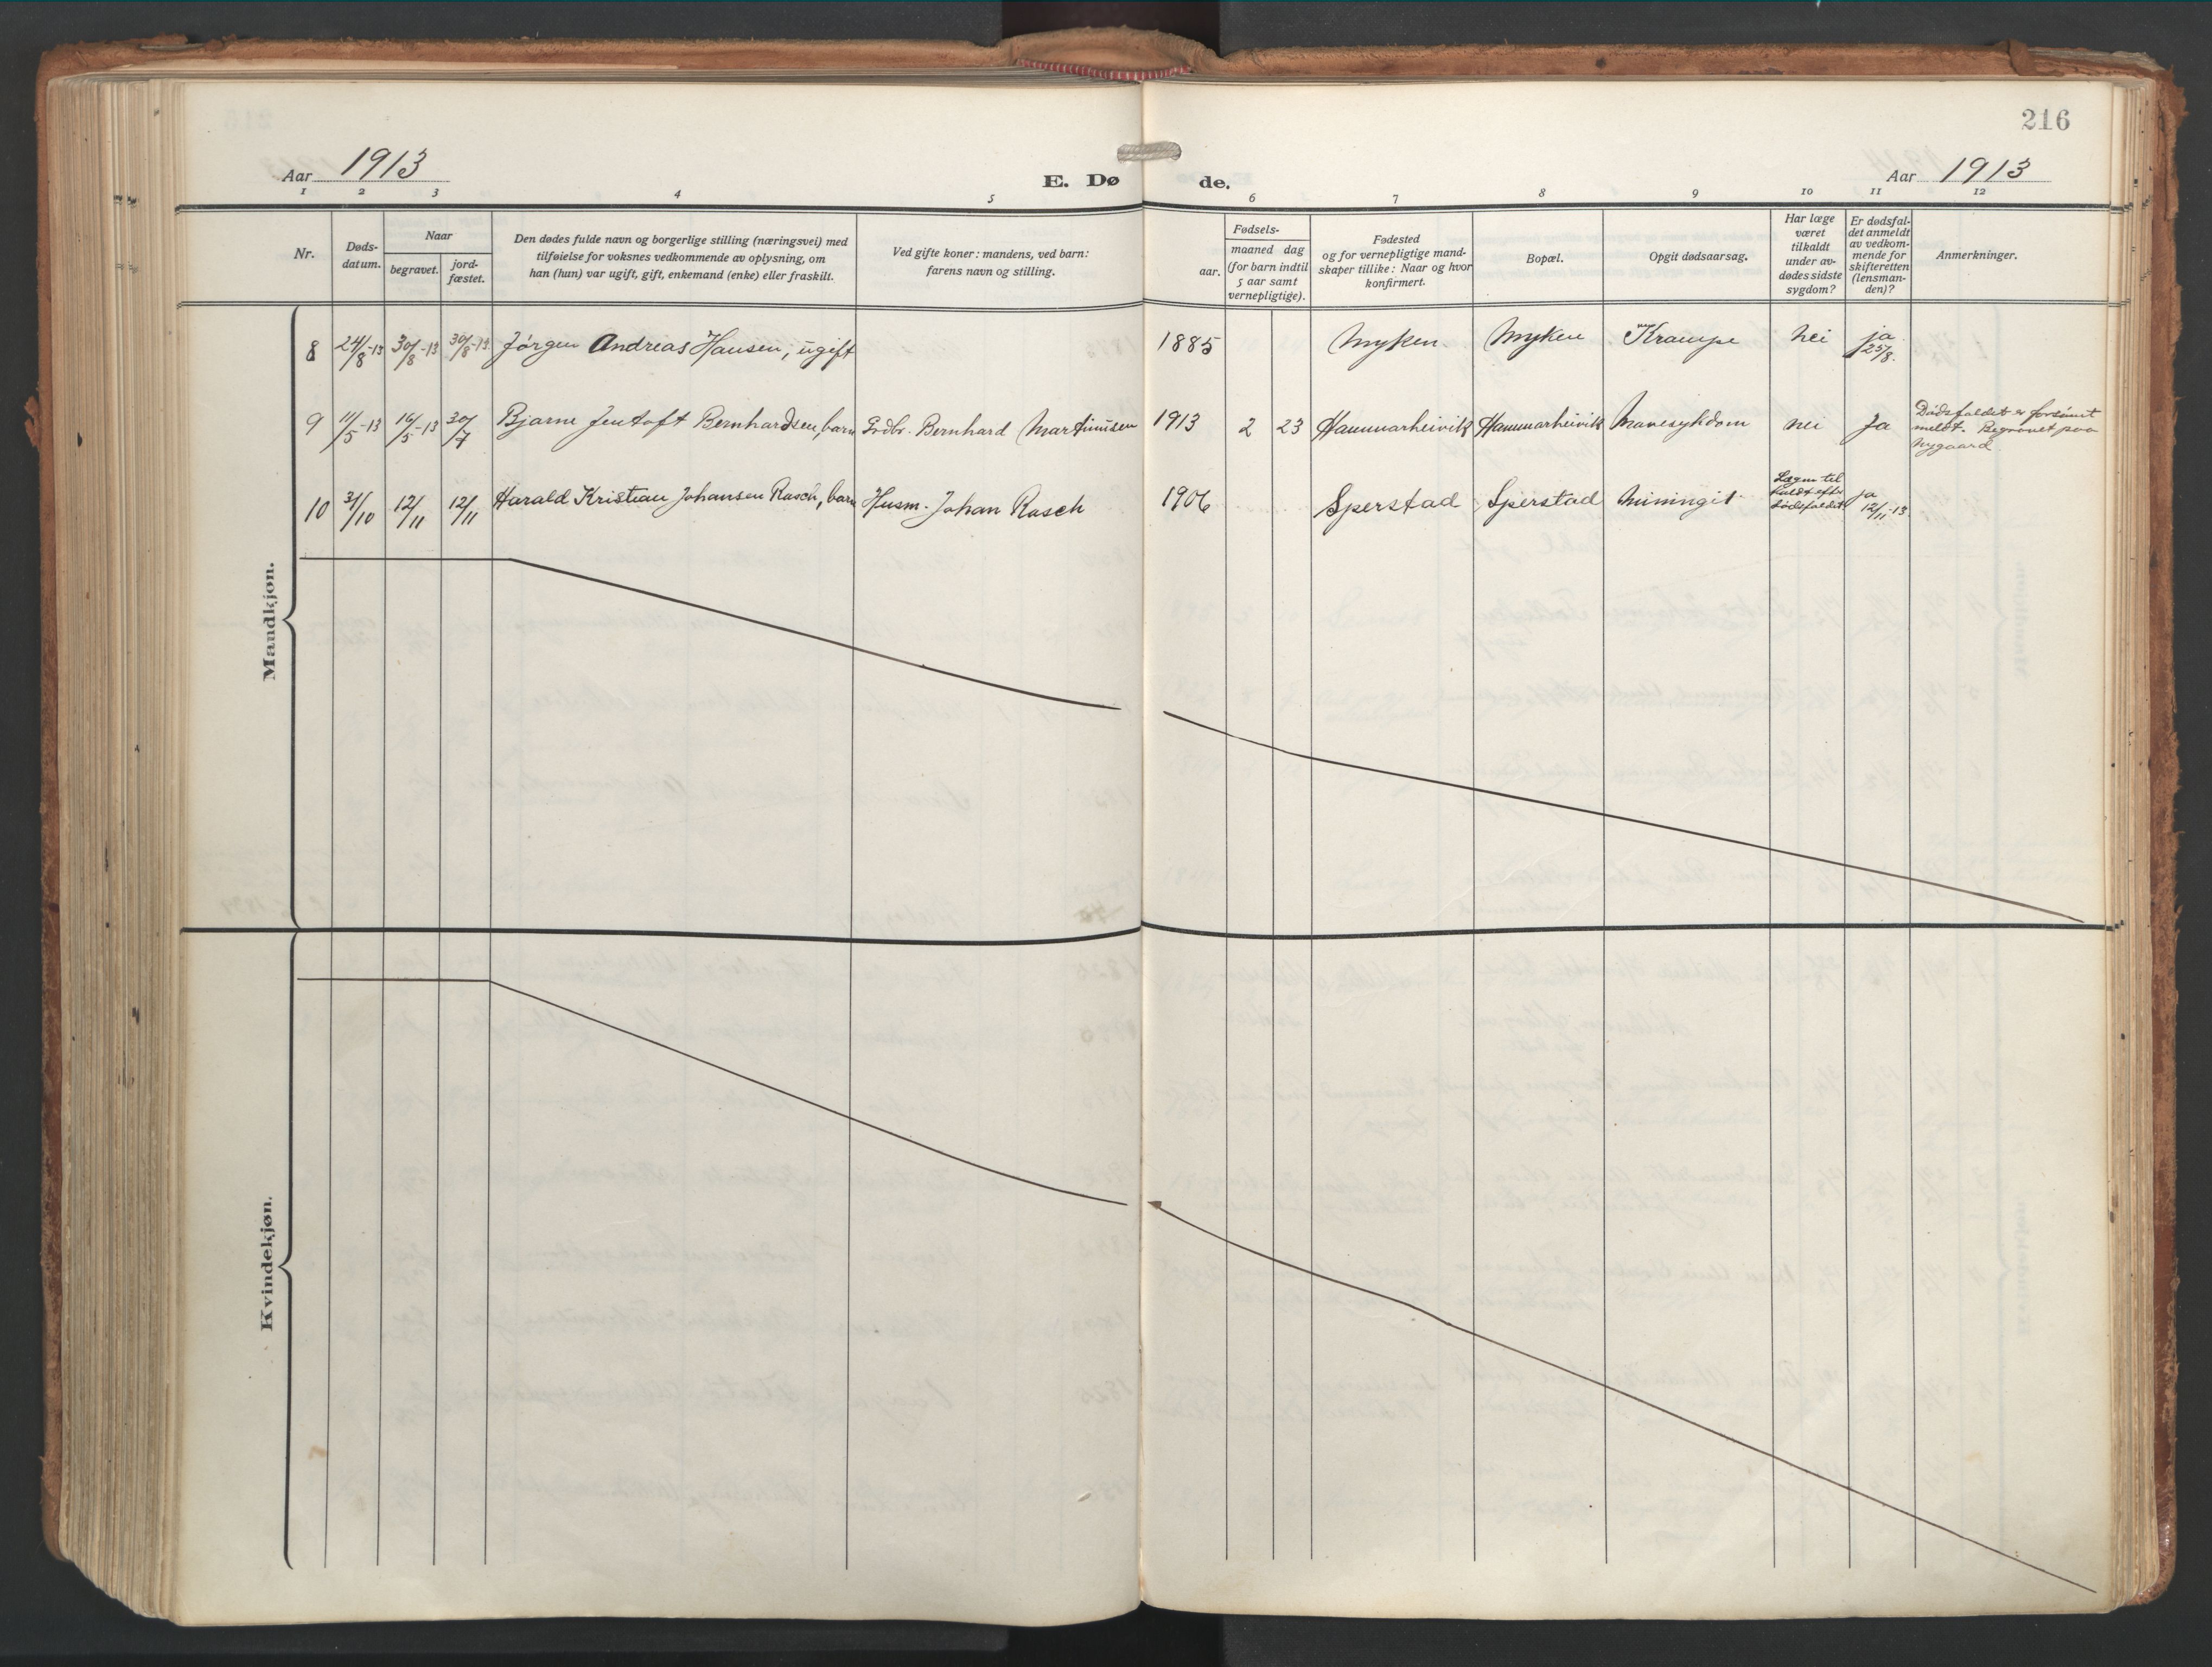 216
Aar 1913
E. Dø de.
Aar 1913
1 2 3 4 5 6 7 8 9 10 11 12
Nr.
Døds-
datum.
Naar
begravet.
jord-
fæstet.
Den dødes fulde navn og borgerlige stilling (næringsvei) med
tilføielse for voksnes vedkommende av oplysning, om
han (hun) var ugift, gift, enkemand (enke) eller fraskilt.
Ved gifte koner: mandens, ved barn:
farens navn og stilling.
Fødsels-
aar.
maaned dag
(for barn indtil
5 aar samt
vernepligtige).
Fødested
og for vernepligtige mand-
skaper tillike: Naar og hvor
konfirmert.
Bopæl.
Opgit dødsaarsag.
Har læge
været
tilkaldt
under av-
dødes sidste
sygdom?
Er dødsfal-
det anmeldt
av vedkom-
mende for
skifteretten
(lensman-
den)?
Anmerkninger.
Mandkjøn.
8 24/8-13 30/8-13 30/8-13 Jørgen Andreas Hansen, ugift 1885 Myken Myken Krampe nei ja
25/8.
9 11/5-13 16/5-13 30/7 Bjarne Jentoft Bernhardsen, barn Grdbr. Bernhard Martinusen 1913 2 23 Hammarheivik Hammarheivik Mavesykdom nei Ja
Dødsfaldet er forsömt
meldt. Begravet paa
Nygaard
10 31/10 12/11 12/11 Harald Kristian Johansen Rasch, barn Husm. Johan Rasch 1906 Sperstad Sperstad Miningit
Lægen til
kaldt efter
dødsfaldet
ja
12/11-13.
Kvindekjøn.